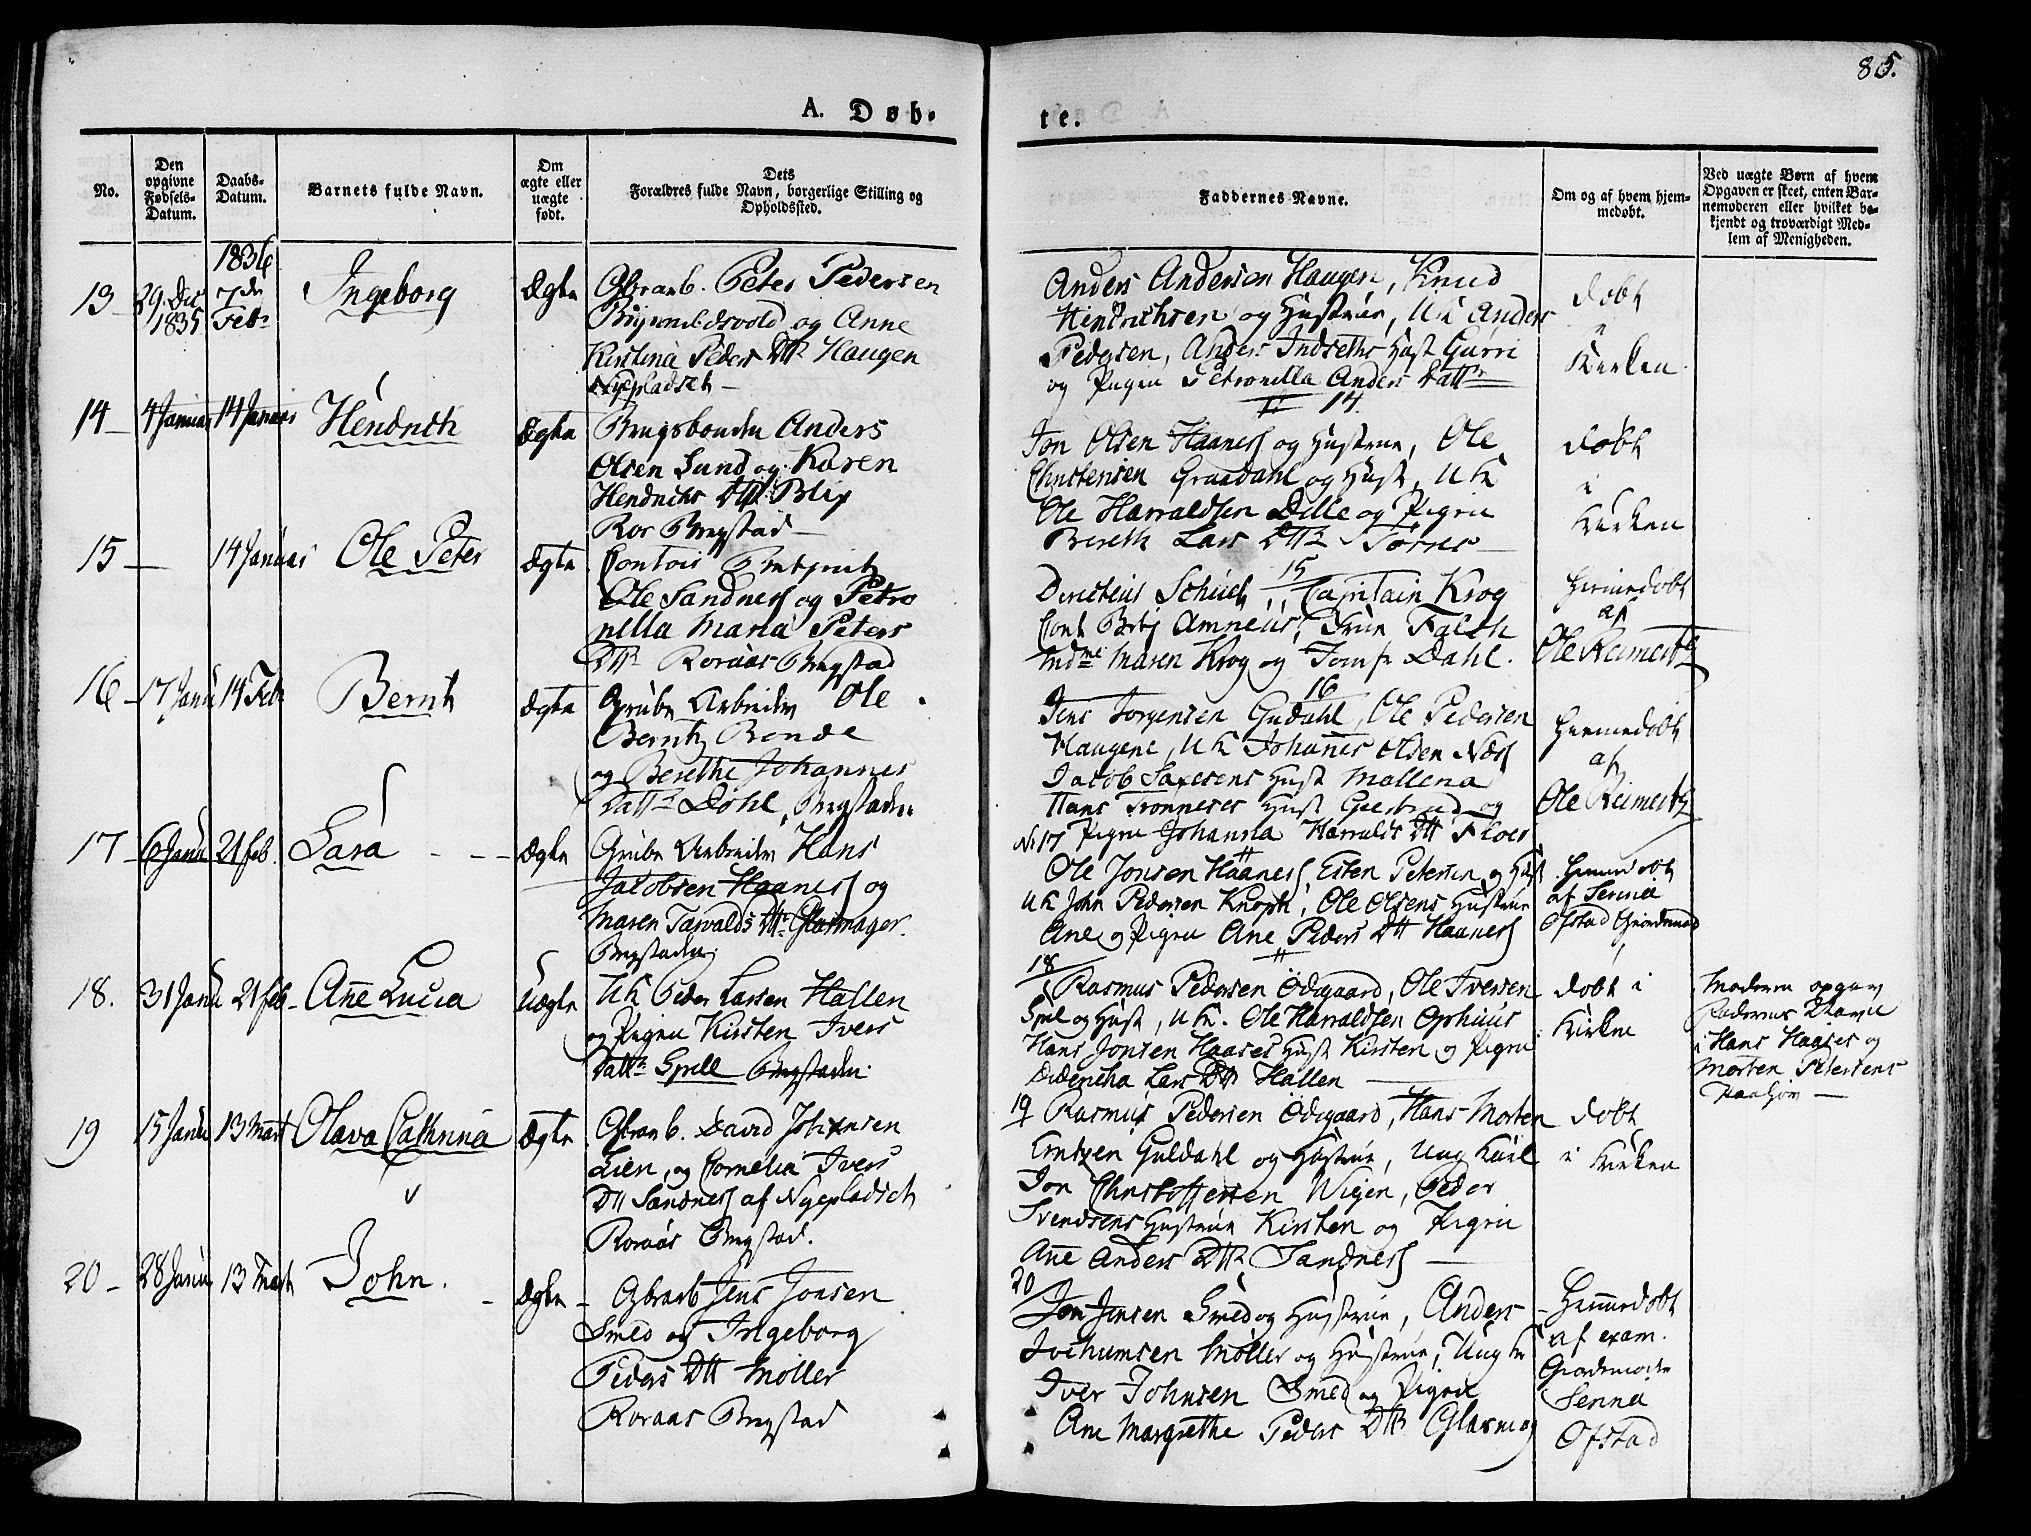 85.
A. Døb-
te.
No.
Den opgivne Fødsels-Datum.
Daabs-Datum.
Barnets fulde Navn.
Om ægte eller uægte født.
Dets Forældres fulde Navn, borgerlige Stilling og Opholdssted.
Faddernes Navne.
Om og af hvem hjemmedøbt.
Ved uægte Børn af hvem Opgaven er skeet, enten Barnemoderen eller hvilket bekjendt og troværdigt Medlem af Menigheden.
1836
13 29. Dec 1835 7de Febr Ingeborg Ægte
Peter Pedersen
og Anne
Kirstina Peders Dtr Haugen
Nyepladset
Anders Andersen Haugen, Knud
Hendrichsen og Hustrue, Uk Anders
Pedersen, Anders Indseths Hust Gurri
og Pigen Petronella Anders Dattr
Døbt
i
Kirken.
14 4 Januar 14 Januar Hendrich Ægte
Anders
Olsen Lund og Karen
Hendrichs Dtr Blix
14
Jon Olsen Haaness og Hustrue, Ole
Christensen Graadahl og Hust, Uk
Ole Harraldsen Dille og Pigen
Bereth Lars Dtr
Døbt
i
Kirken
15 14 Januar Ole Peter Ægte
Ole Sandness og Petro
nella Maria Peters
Dtr Roraas Bergstad
15
Capitain Krog
Amneus, Frue Falch
Maren Krog og Jomfr Dahl.
Hjemmedøbt
af
Ole
16 17 Janu 14 Febr Bernt Ægte
Grube Arbeider Ole
Bernt
og Berethe Johannes
Datter Döhl, Bergstaden
16
Jens Jorgensen Guldahl, Ole Pedersen
Haugene, Uk Johannes Olsen Næss
Jacob Hust Mallena
Hans Hust og
Pigen Johanna Harralds Dtr Floer
Hjemmedøbt
af
Ole
17 6 Janu 21 feb. Lara Ægte
Grube Arbeider Hans
Jacobsen Haaness og
Maren Dtr Glasmager.
Bergstaden
No 17
Ole Jonsen Haaness, Esten Petersen og Hust
Uk John Pedersen Knoph, Ole Olsens Hustrue
Ane og Pigen Ane Peders Dtr Haaness
Hjemmedøbt
af
Ofstad
18. 31 Janu 21 feb Ane Lucia Uægte
Uk Peder Larsen Hallen
og Pigen Kirsten Ivers
Datter Spell Bergstaden.
18
Rasmus Pedersen Ödegaard, Ole Iversen
Spel og Hust, Uk. Ole Harraldsen Ophuus
Hans Jonsen Haases Hust Kirsten og Pigen
Lars Dtr Hallen
Døbt i
Kirken
Moderen opgav
Faderens Navn
i Hans Haases og
Morten Petersens
Paahør
19 15 Janu 13 Mart Olava Cathrina Ægte
David Johnsen
Lien, og Cornelia Ivers
Dtr Sandness af Nyepladset
Roraas Bergstad.
19
Rasmus Pedersen Ödegaard, Hans Morten
Guldahl og Hustrue, Ung Karl
Jon Christoffersen Wigen, Peder
Svendsens Hustrue Kirsten og Pigen
Ane Anders Dtr Sandness
Døbt
i Kirken
20 28 Janu 13 Mart John. Ægte
Jens Jonsen
Smed og Ingeborg
Peders Dtr Möller
Roraas Bergstad
20
Jon Jensen Smed og Hustrue, Anders
Jochumsen Möller og Hustrue, Ung Kr
Iver Johnsen Smed og Pigen
Ane Margrethe Peders Dtr Glasmag
Hjemmedøbt
af exam.
Ofstad